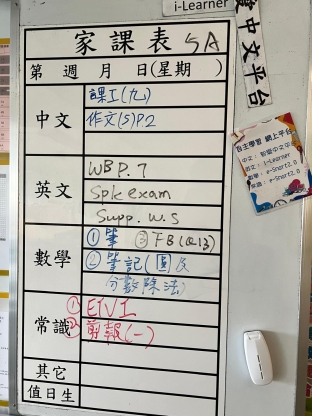 i-Learner
中文平台
家課表 5A
第 週 月 日(星期 )
中文
課工(九)
作文(5)P.2
英文
WB P. 7
Spk exam
Supp. w.s
數學
① 筆 ③ FB(a.13)
② 筆記(圓及
分數除法)
常識
① EIVI
② 剪報(一)
其它
值日生
自主學習 網上平台
i-Learner
e-Smart 2.0
e-Smart 2.0